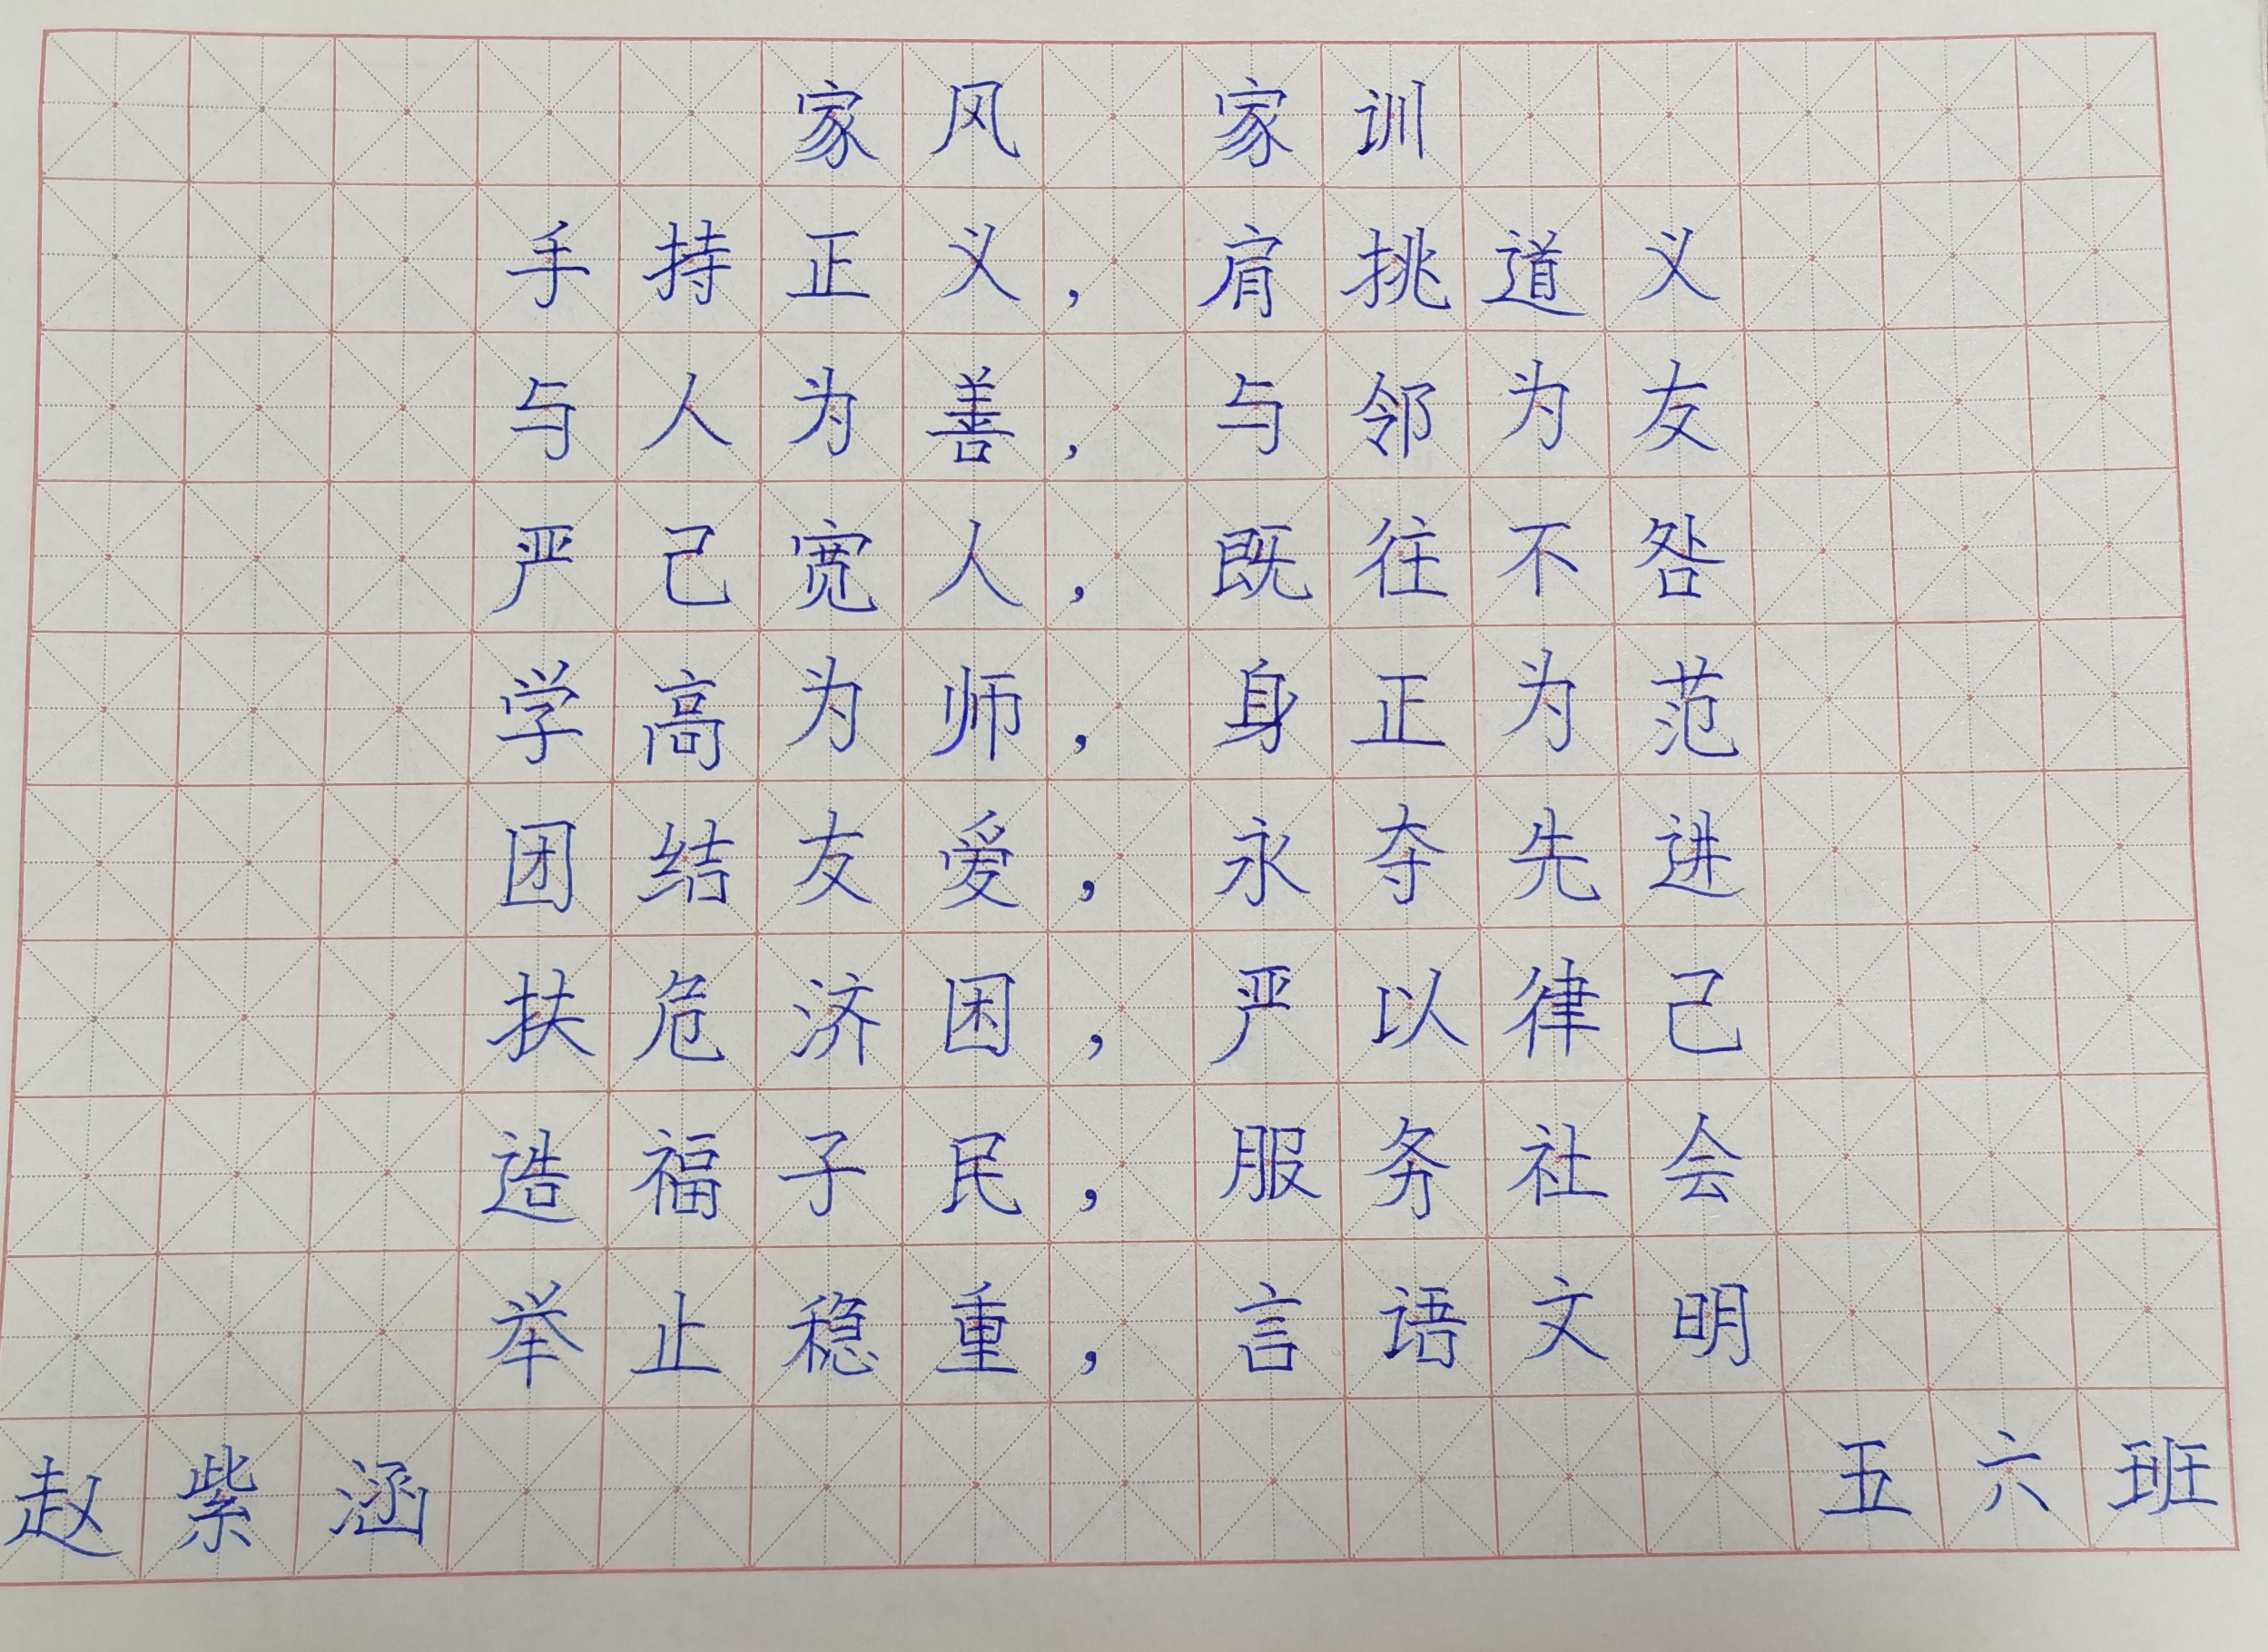 家风 家训
手持正义，肩挑道义
与人为善，与邻为友
严己宽人，既往不咎
学高为师，身正为范
团结友爱，永夺先进
扶危济困，严以律己
造福子民，服务社会
举止稳重，言语文明
赵紫涵 五六班